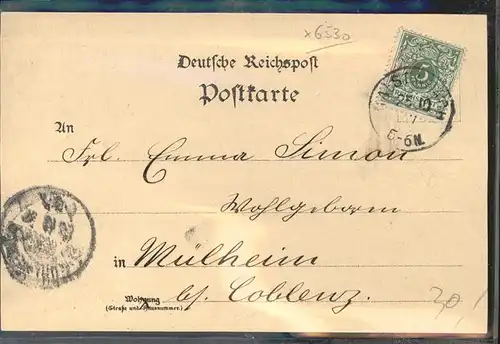 x6530
Deutsche Reichspost
Postkarte
An
Frl. Emma Simon
Wohlgeboren
in Mülheim
Wohnung bz. Coblenz.
(Straße und Hausnummer)
5-6N.
20,